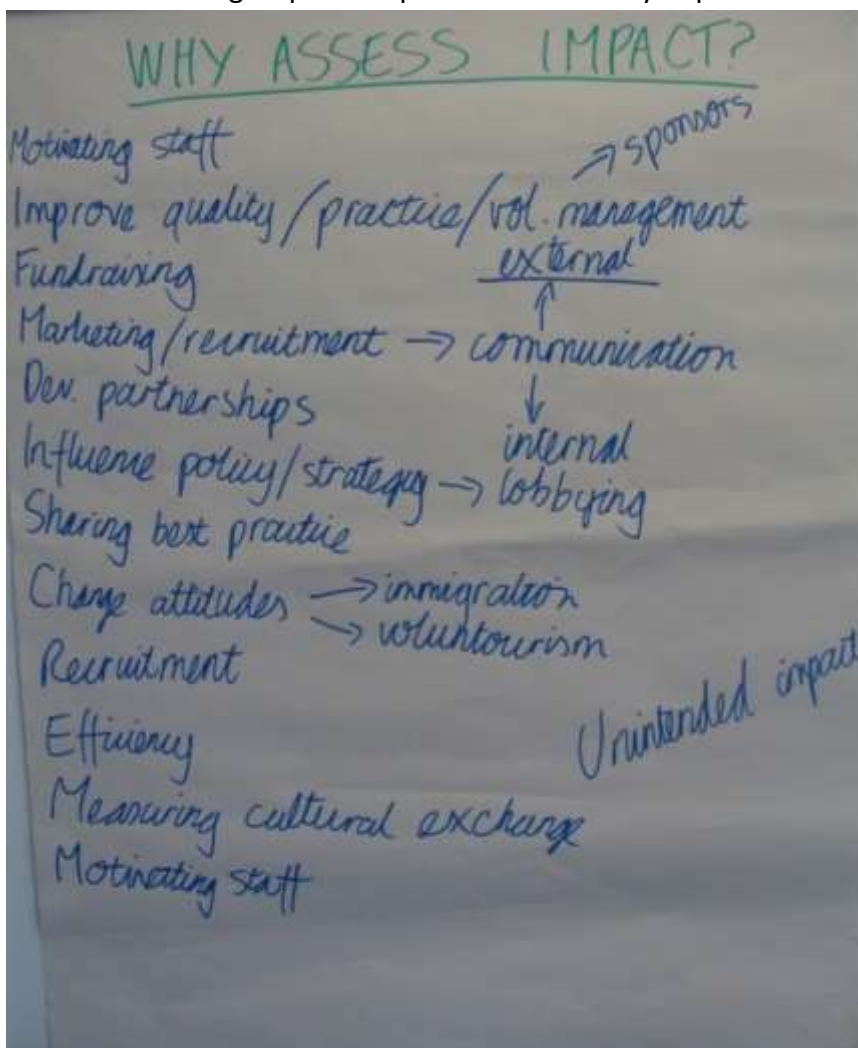 WHY ASSESS IMPACT?
Motivating staff
→ sponsors
Improve quality/practice/vol. management
Fundraising
external
↑
Marketing/recruitment → communication
↓
Dev. partnerships
internal
Influence policy/strategy → lobbying
Sharing best practice
Change attitudes → immigration
→ voluntourism
Recruitment
Efficiency
Unintended impact
Measuring cultural exchange
Motivating staff